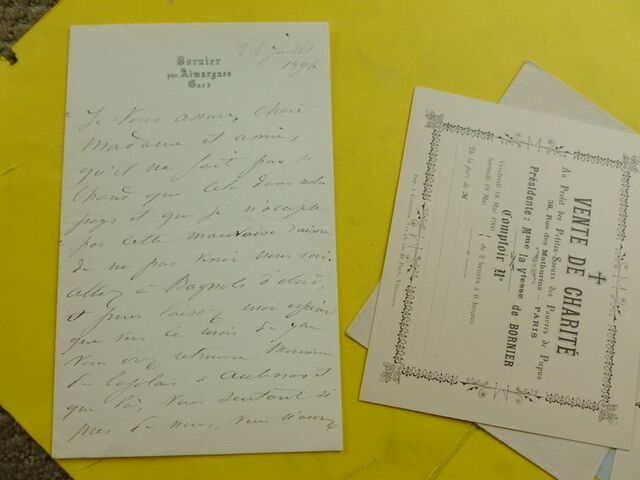 24 Juillet
1896
Bornier
par Aimargues
Gard
Je vous assure, chère
Madame et amie,
qu'il ne fait pas si
chaud que cela dans notre
pays et que je n'accepte
pas cette mauvaise raison
de ne pas venir nous voir.
Allez à Bagnols d'abord,
et puis laissez moi espérer
que vous
vous retrouver Monsieur
de à et
que là, vous sentant si
près de nous, vous n'aurez
VENTE DE CHARITÉ
Au Profit des Petites-Sœurs des Pauvres de Picpus
38, Rue des Mathurins — PARIS
Présidente : Mme la Vtesse de BORNIER
Comptoir No
Vendredi 18 Mai 1900
Samedi 19 Mai
de 2 heures à 6 heures.
De la part de M